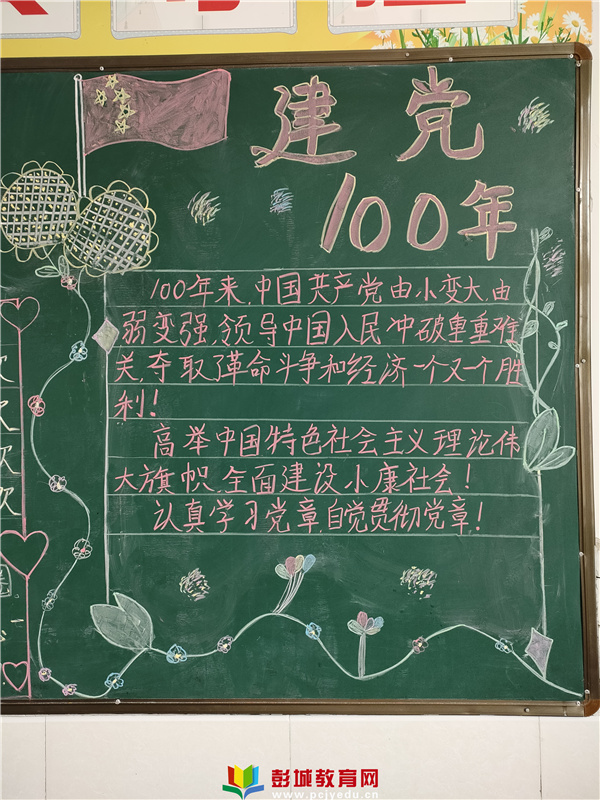 建党
100年
100年来,中国共产党由小变大,由
弱变强,领导中国人民冲破重重难
关,夺取了革命斗争和经济一个又一个胜
利!
高举中国特色社会主义理论伟
大旗帜,全面建设小康社会!
认真学习党章,自觉贯彻党章!
欢
欢
彭城教育网
www.pcjyedu.cn